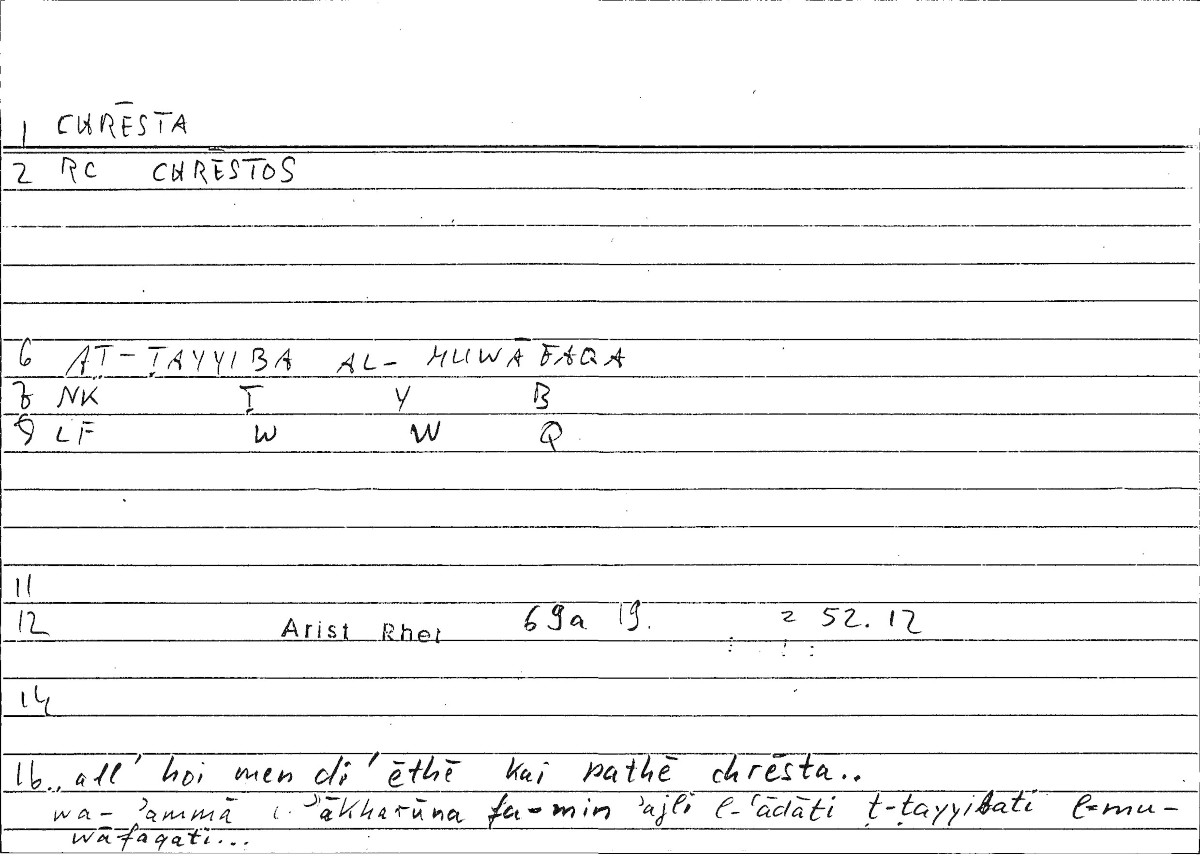 1 CHRĒSTA
2 RC CHRĒSTOS
6 AṬ-ṬAYYIBA AL-MUWĀFAQA
7 NK Ṭ Y B
9 LF W W Q
11
12 Arist Rhet 69a 19. = 52.12
14
16 .. all' hoi men di' ēthē kai pathē chrēsta..
wa-'ammā l-'ākharūna fa-min 'ajli l-'ādāti ṭ-ṭayyibati l-mu-
wāfaqati...